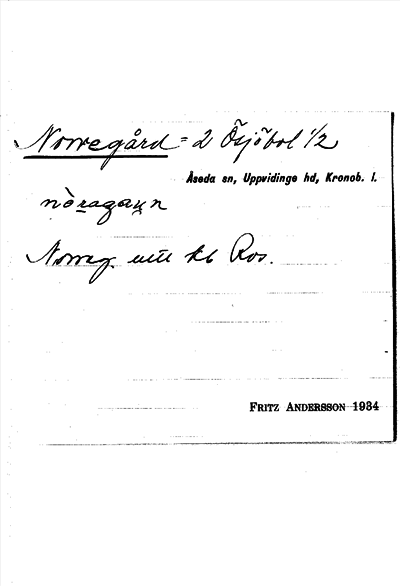 Norregård = 2 Ösjöbol 1/2
Åseda sn, Uppvidinge hd, Kronob. l.
nòragaụn
Norreg. utt kb Ros.
FRITZ ANDERSSON 1934